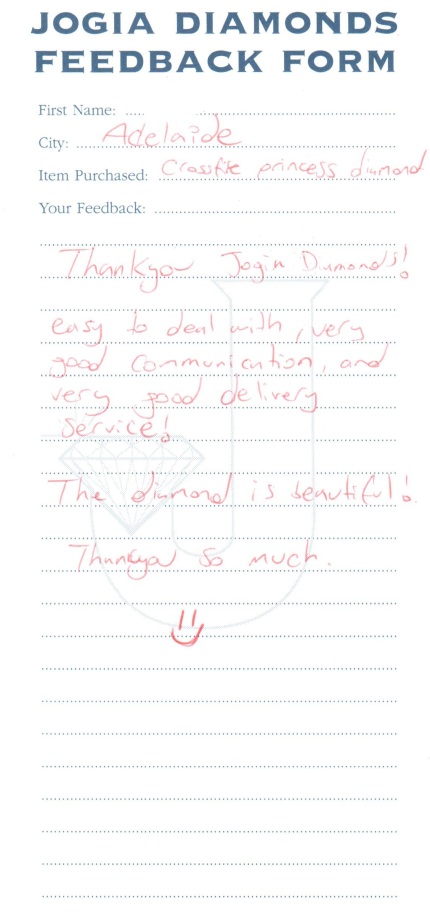 JOGIA DIAMONDS
FEEDBACK FORM
First Name:
City: Adelaide
Item Purchased: Crossfire princess diamond
Your Feedback:
Thankyou Jogia Diamonds!
easy to deal with, very
good communication, and
very good delivery
service!
The diamond is beautiful!
Thankyou so much.